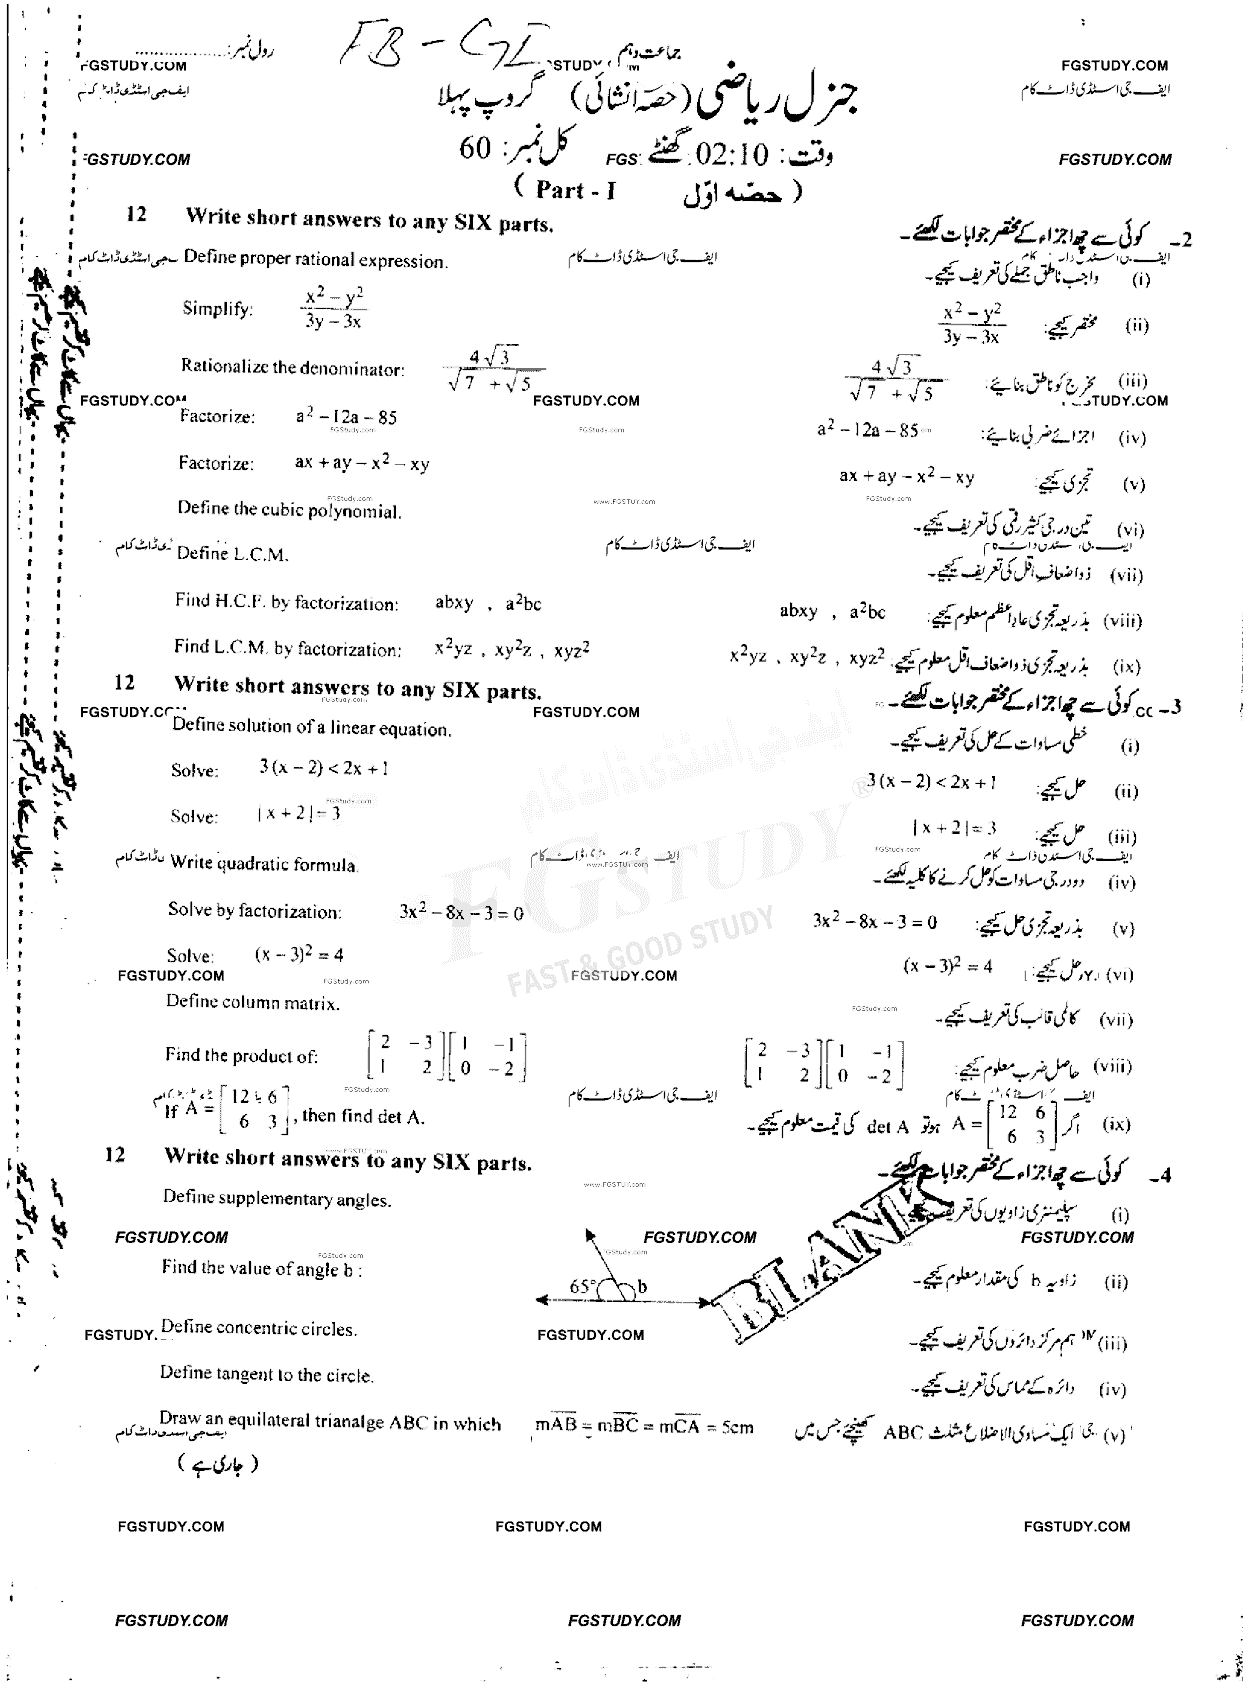 FB - GI
جماعت دہم
رول نمبر:
جنرل ریاضی (حصہ انشائی) گروپ پہلا
وقت: 02:10 گھنٹے کل نمبر: 60
( Part - I حصہ اوّل )
12 Write short answers to any SIX parts. کوئی سے چھ اجزاء کے مختصر جوابات لکھئے۔ -2
Define proper rational expression. واجب ناطق جملے کی تعریف کیجیے۔ (i)
Simplify: (x² – y²)/(3y – 3x) مختصر کیجیے: (x² – y²)/(3y – 3x) (ii)
Rationalize the denominator: 4√3/(√7 + √5) مخرج کو ناطق بنائیے: 4√3/(√7 + √5) (iii)
Factorize: a² – 12a – 85 اجزائے ضربی بنائیے: a² – 12a – 85 (iv)
Factorize: ax + ay – x² – xy تجزی کیجیے: ax + ay – x² – xy (v)
Define the cubic polynomial. تین درجی کثیر رقمی کی تعریف کیجیے۔ (vi)
Define L.C.M. ذواضعاف اقل کی تعریف کیجیے۔ (vii)
Find H.C.F. by factorization: abxy , a²bc بذریعہ تجزی عاداعظم معلوم کیجیے: abxy , a²bc (viii)
Find L.C.M. by factorization: x²yz , xy²z , xyz² بذریعہ تجزی ذواضعاف اقل معلوم کیجیے: x²yz , xy²z , xyz² (ix)
12 Write short answers to any SIX parts. کوئی سے چھ اجزاء کے مختصر جوابات لکھئے۔ -3
Define solution of a linear equation. خطی مساوات کے حل کی تعریف کیجیے۔ (i)
Solve: 3(x – 2) < 2x + 1 حل کیجیے: 3(x – 2) < 2x + 1 (ii)
Solve: |x + 2| = 3 حل کیجیے: |x + 2| = 3 (iii)
Write quadratic formula. دودرجی مساوات کو حل کرنے کا کلیہ لکھئے۔ (iv)
Solve by factorization: 3x² – 8x – 3 = 0 بذریعہ تجزی حل کیجیے: 3x² – 8x – 3 = 0 (v)
Solve: (x – 3)² = 4 حل کیجیے: (x – 3)² = 4 (vi)
Define column matrix. کالمی قالب کی تعریف کیجیے۔ (vii)
Find the product of: [2 –3; 1 2][1 –1; 0 –2] حاصل ضرب معلوم کیجیے: [2 –3; 1 2][1 –1; 0 –2] (viii)
If A = [12 6; 6 3], then find det A. اگر A = [12 6; 6 3] ہو تو det A کی قیمت معلوم کیجیے۔ (ix)
12 Write short answers to any SIX parts. کوئی سے چھ اجزاء کے مختصر جوابات لکھئے۔ -4
Define supplementary angles. سپلیمنٹری زاویوں کی تعریف کیجیے۔ (i)
Find the value of angle b : 65° b زاویہ b کی مقدار معلوم کیجیے۔ (ii)
BLANK
Define concentric circles. ہم مرکز دائروں کی تعریف کیجیے۔ (iii)
Define tangent to the circle. دائرہ کے مماس کی تعریف کیجیے۔ (iv)
Draw an equilateral trianalge ABC in which mAB = mBC = mCA = 5cm ایک مساوی الاضلاع مثلث ABC کھینچئے جس میں (v)
( جاری ہے )
FGSTUDY
FAST & GOOD STUDY
ایف جی اسٹڈی ڈاٹ کام
FGSTUDY.COM FGSTUDY.COM FGSTUDY.COM
FGSTUDY.COM FGSTUDY.COM FGSTUDY.COM